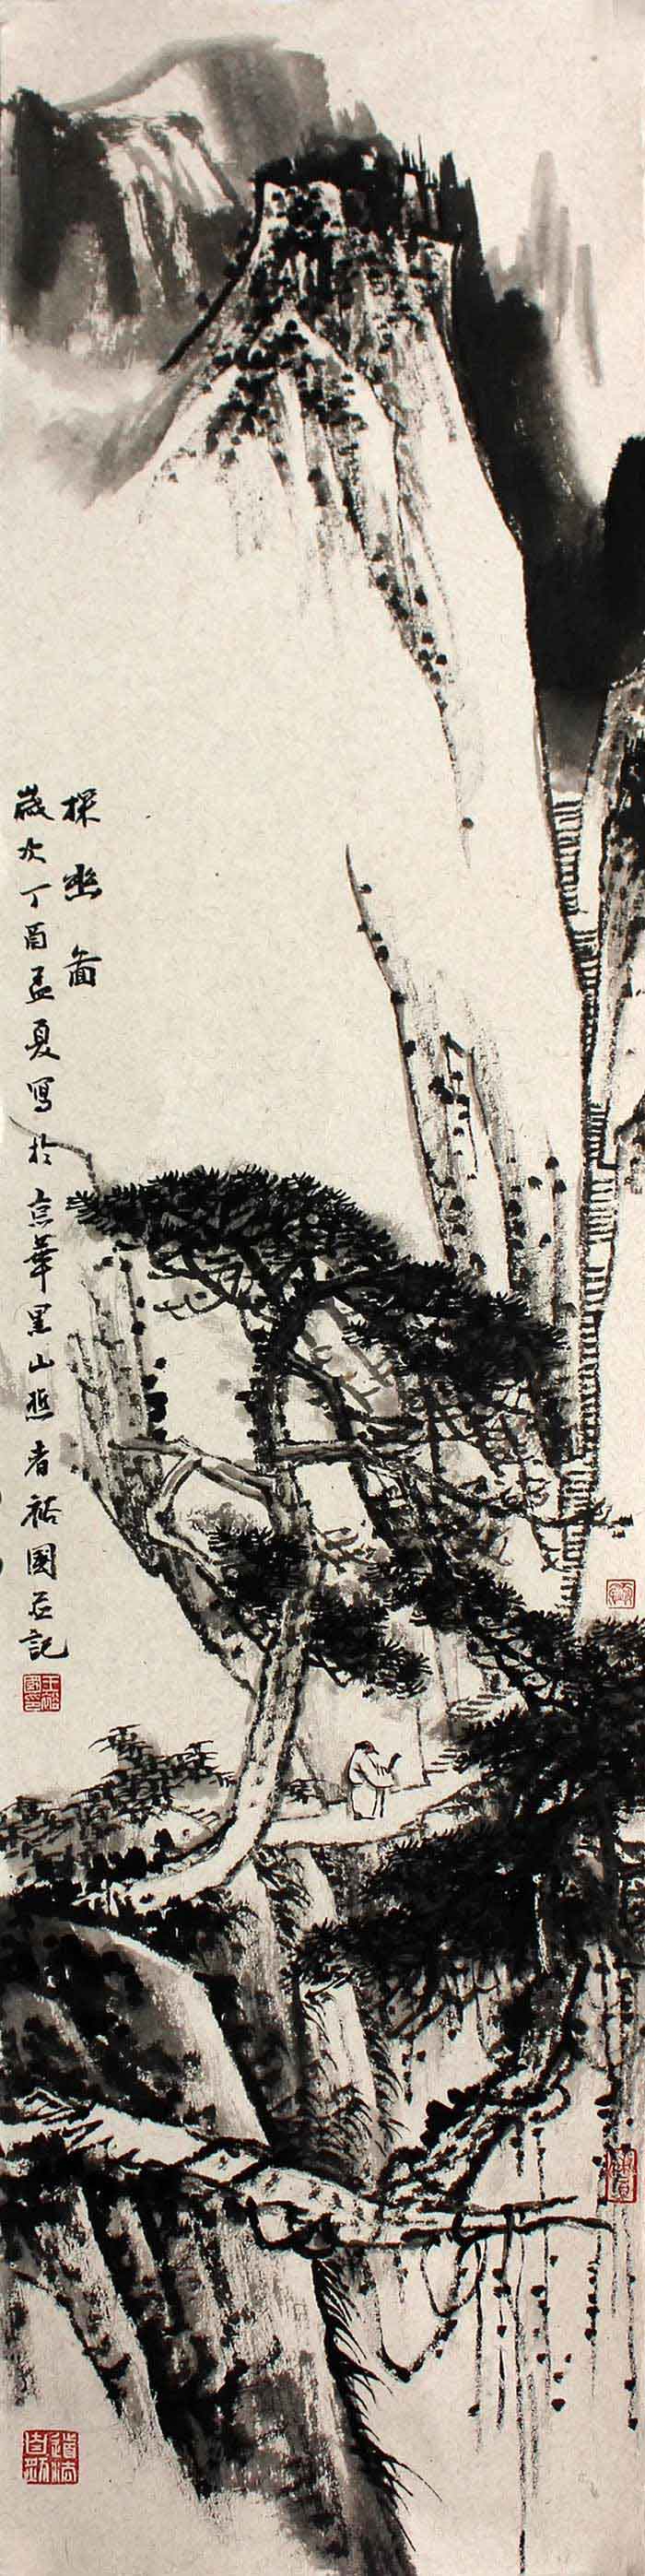 探幽圖
歲次丁酉孟夏寫於京華黑山樵者祐國並記